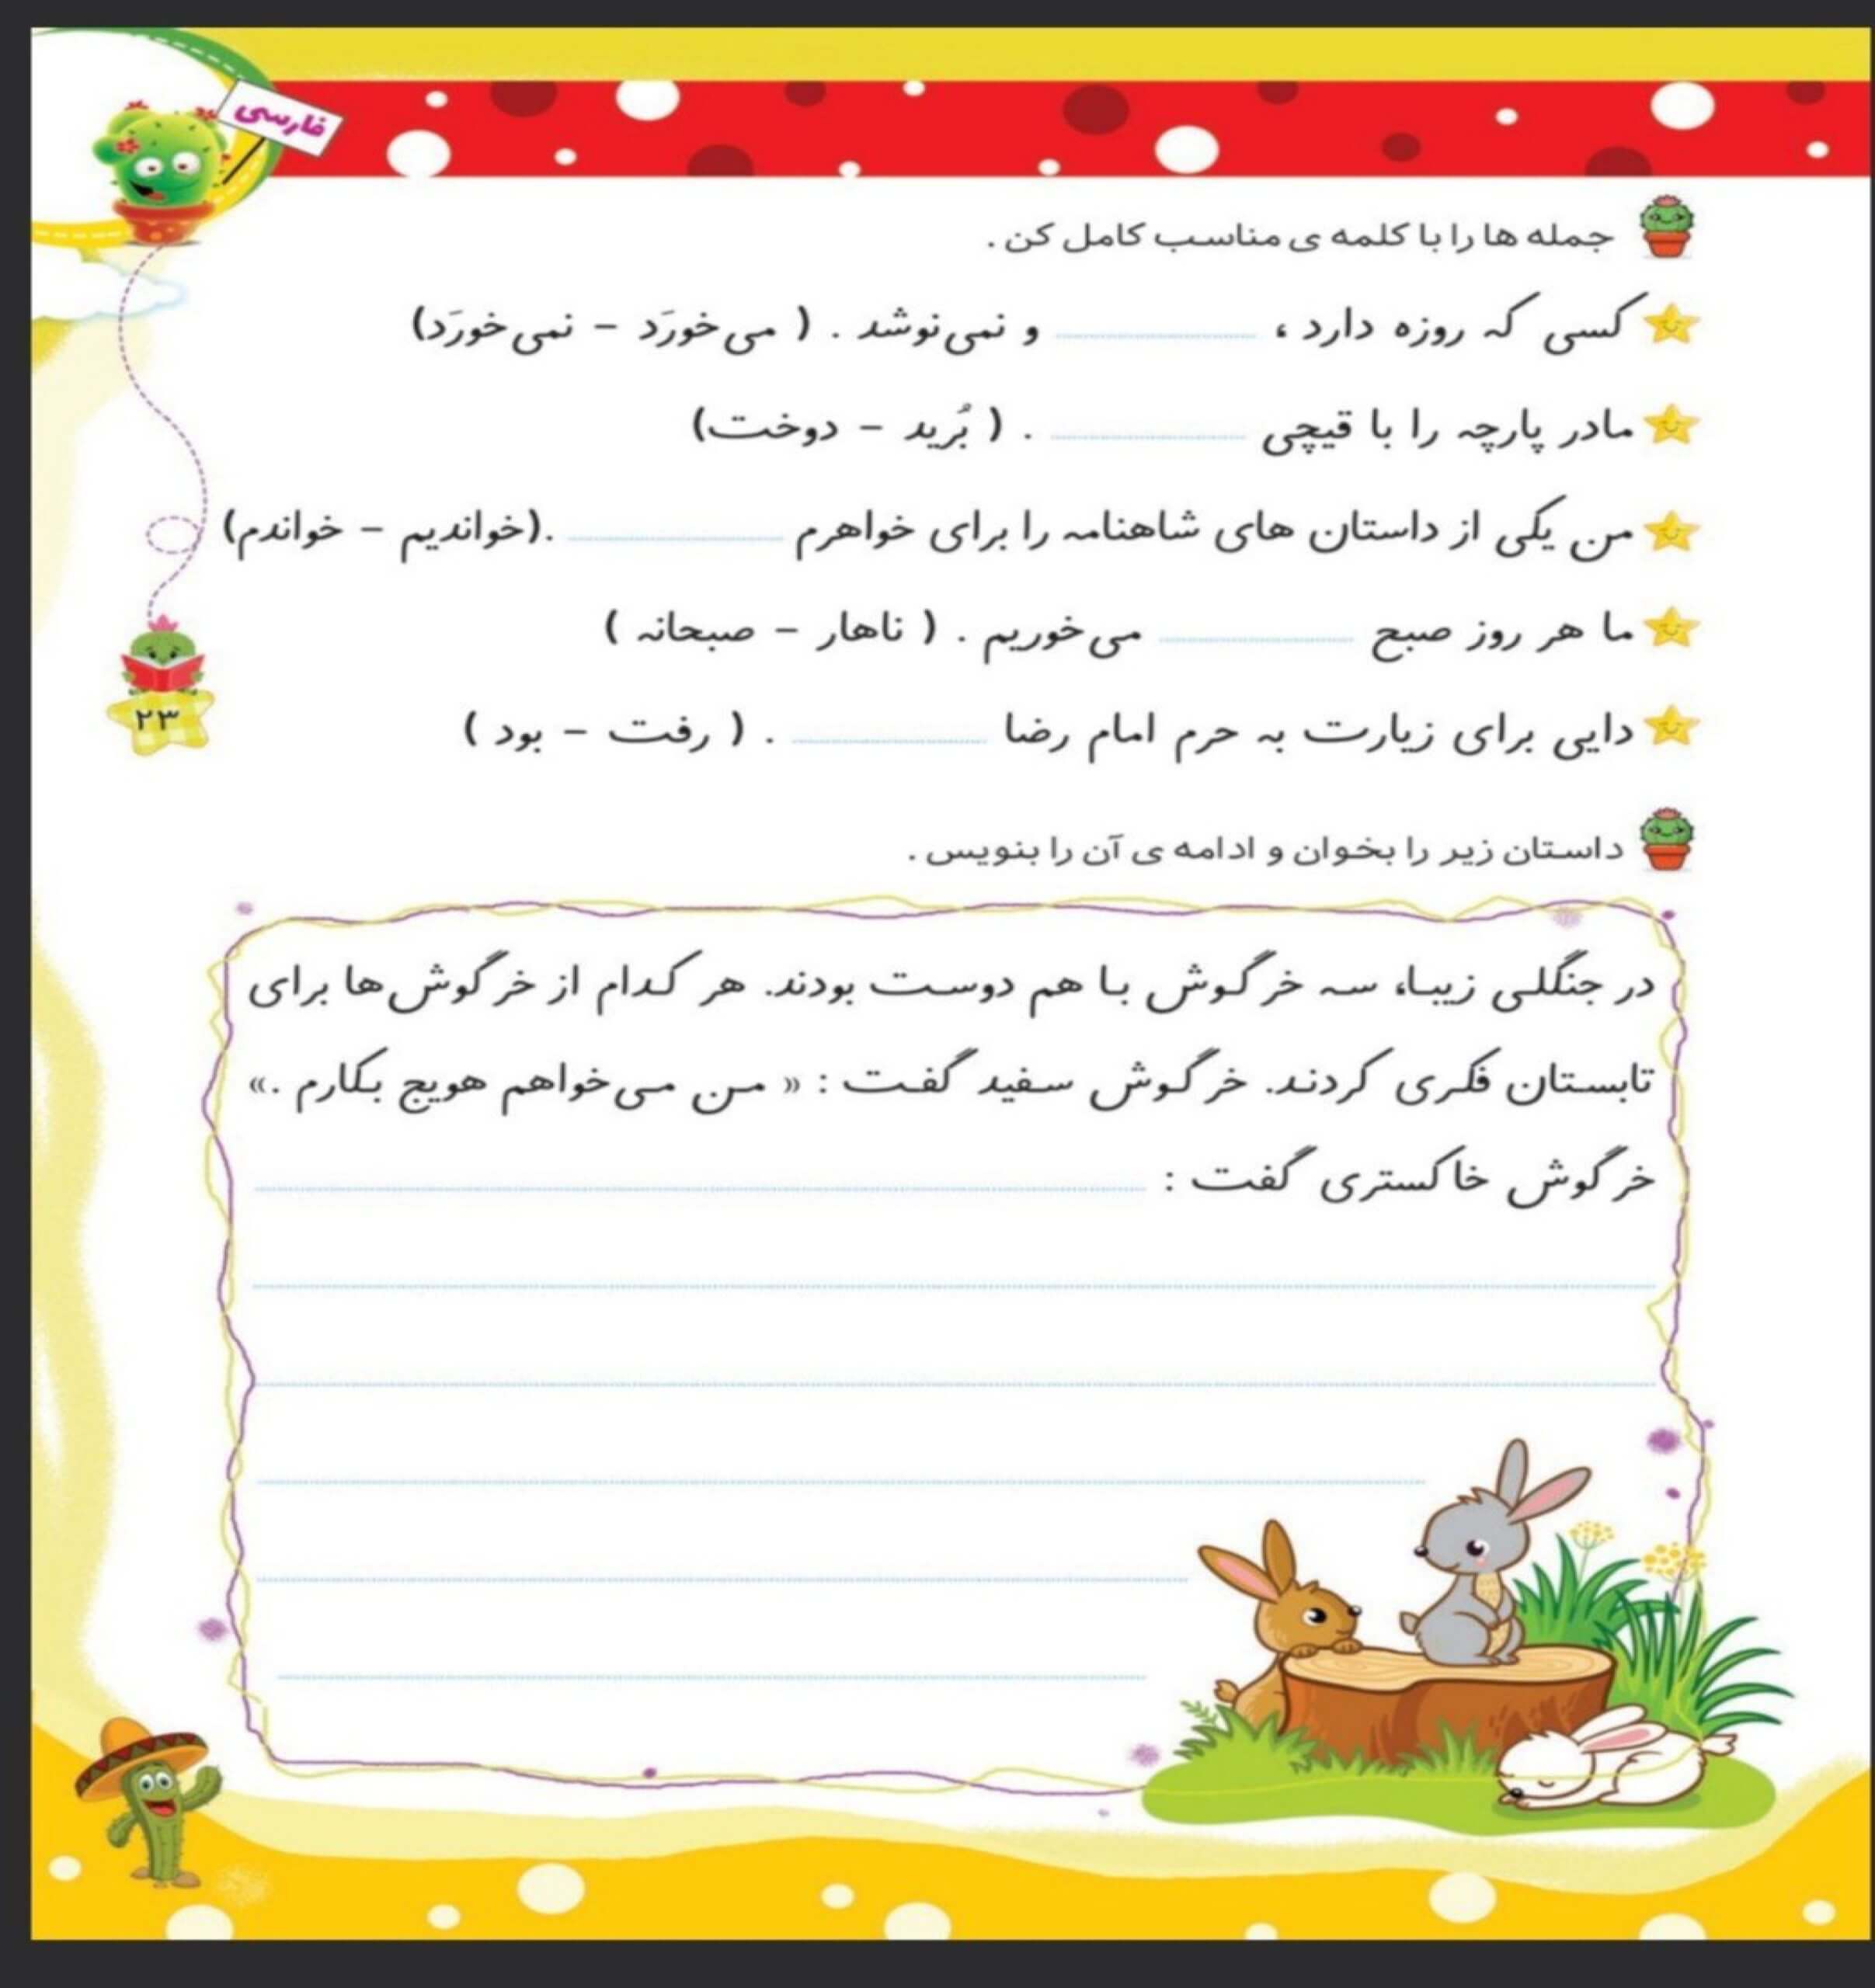 فارسی
جمله ها را با کلمه ی مناسب کامل کن .
کسی که روزه دارد ، ............ و نمی‌نوشد . ( می‌خورَد – نمی‌خورَد)
مادر پارچه را با قیچی ............ . ( بُرید – دوخت)
من یکی از داستان های شاهنامه را برای خواهرم ............ .(خواندیم – خواندم)
ما هر روز صبح ............ می‌خوریم . ( ناهار – صبحانه )
۲۳
دایی برای زیارت به حرم امام رضا ............ . ( رفت – بود )
داستان زیر را بخوان و ادامه ی آن را بنویس .
در جنگلی زیبا، سه خرگوش با هم دوست بودند. هر کدام از خرگوش‌ها برای
تابستان فکری کردند. خرگوش سفید گفت : « من می‌خواهم هویج بکارم .»
خرگوش خاکستری گفت :